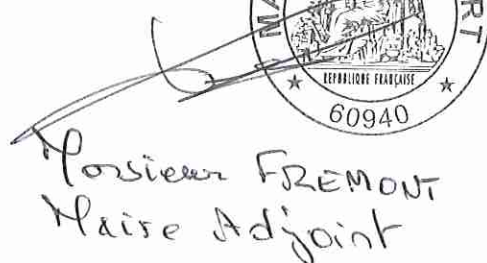 RÉPUBLIQUE FRANÇAISE
60940
Monsieur FREMONT
Maire Adjoint